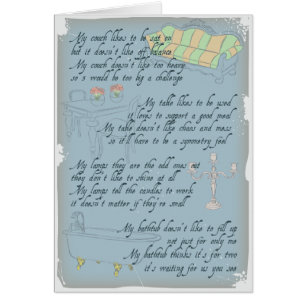 My couch likes to be sat on
but it doesn't like off balance
My couch doesn't like too heavy
so 3 would be too big a challenge
My table likes to be used
it loves to support a good meal
My table doesn't like chaos and mess
so it'll have to be a symmetry feel
My lamps they are the odd ones out
they don't like to shine at all
My lamps tell the candles to work
it doesn't matter if they're small
My bathtub doesn't like to fill up
not just for only me
My bathtub thinks it's for two
it's waiting for us you see